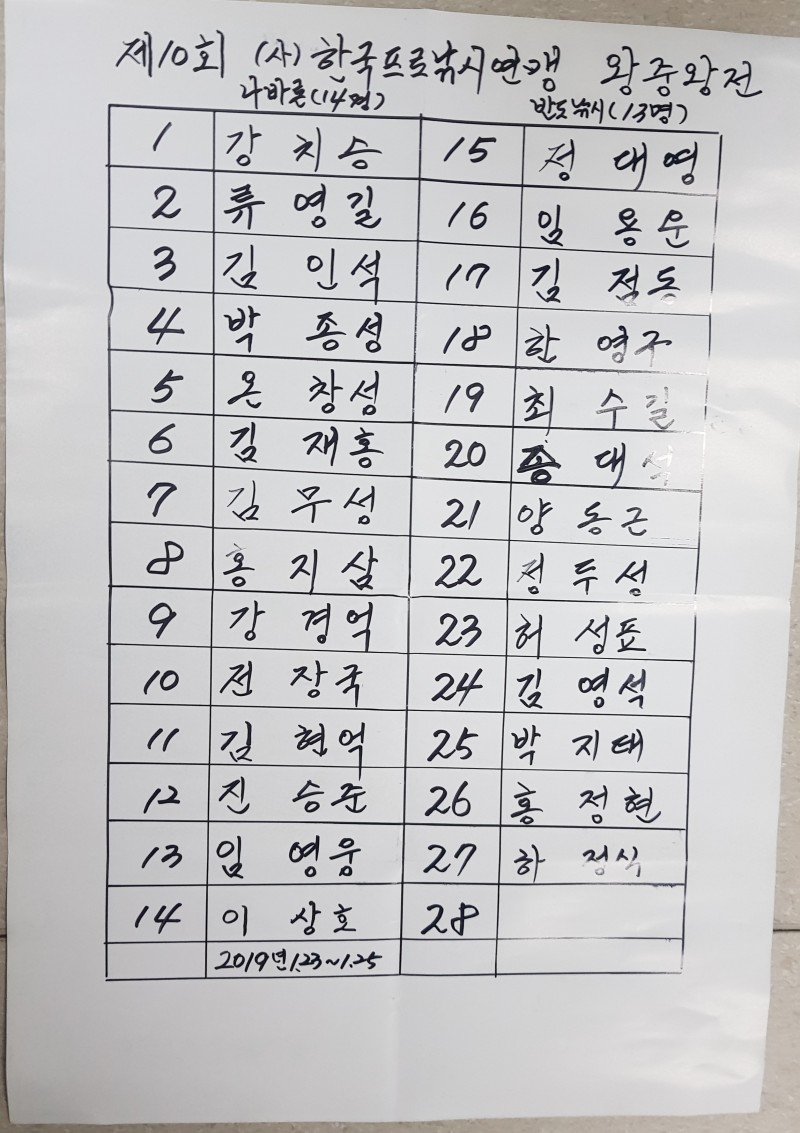 제10회 (사)한국프로낚시연맹 왕중왕전
나바론(14명) 반도낚시(13명)
1 강 치승 15 정 대영
2 류 영길 16 임 용운
3 김 인석 17 김 점동
4 박 종성 18 한 영구
5 온 창성 19 최 수길
6 김 재홍 20 대석
7 김 무성 21 양 동근
8 홍 지삼 22 정 두성
9 강 경억 23 허 성표
10 전 장국 24 김 영석
11 김 현억 25 박 지태
12 진 승준 26 홍 정현
13 임 영웅 27 하 정식
14 이 상호 28
2019년1.23~1.25